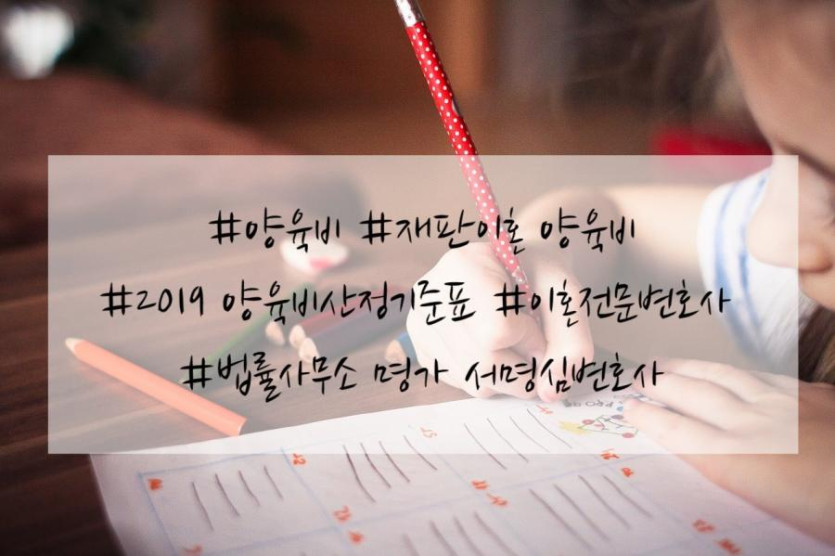 #양육비 #재판이혼 양육비
#2019 양육비산정기준표 #이혼전문변호사
#법률사무소 명가 서명심변호사